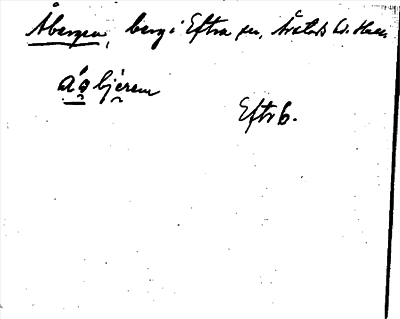 Åbergen, berg i Eftra sn, Årstads hd. Hall.
åo bjεrεm
Eftr b.